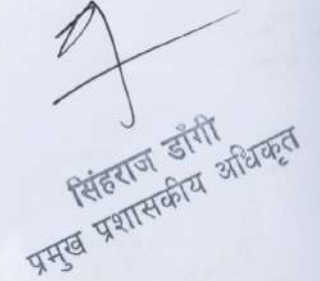 सिंहराज डाँगी
प्रमुख प्रशासकीय अधिकृत